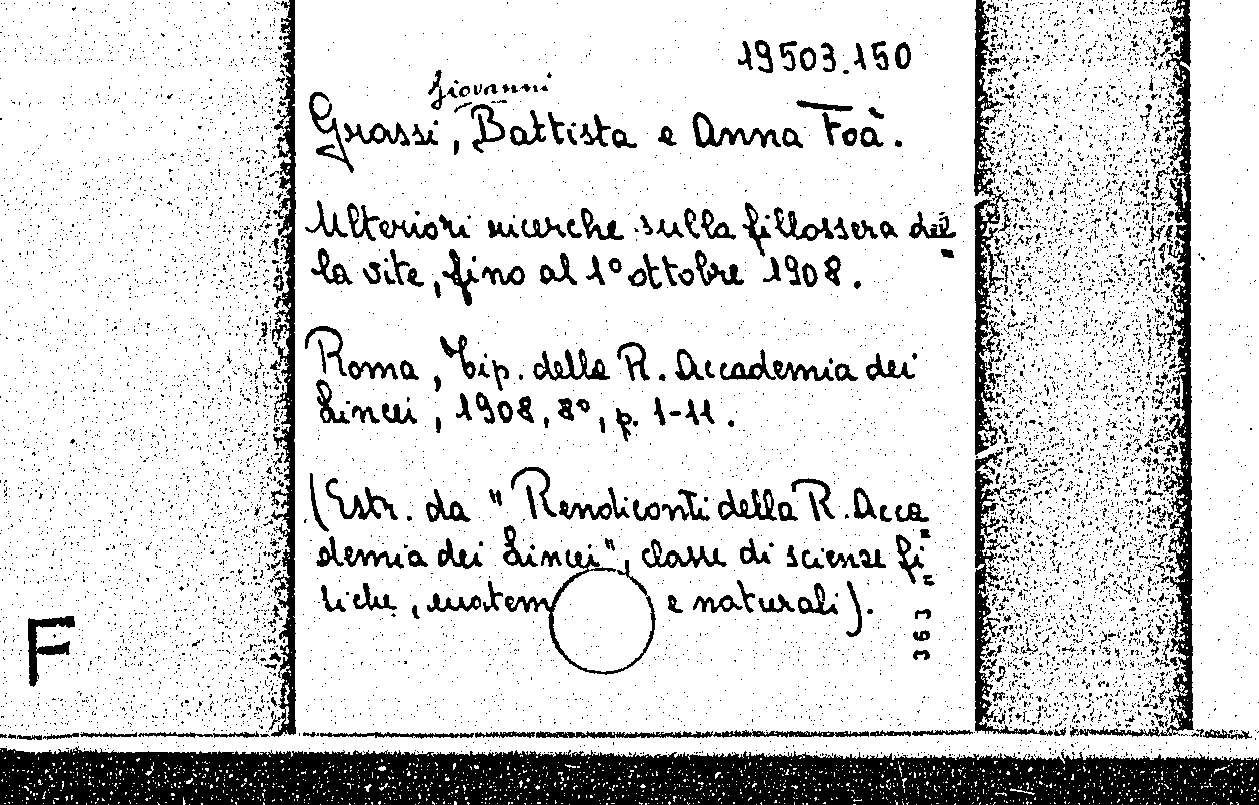 19503.150
Giovanni
Grassi, Battista e Anna Foà.
Ulteriori ricerche sulla fillossera del=
la vite, fino al 1° ottobre 1908.
Roma, Tip. della R. Accademia dei
Lincei, 1908, 8°, p. 1-11.
(Estr. da "Rendiconti della R. Acca=
demia dei Lincei", classe di scienze fi=
siche, matem e naturali).
363
F